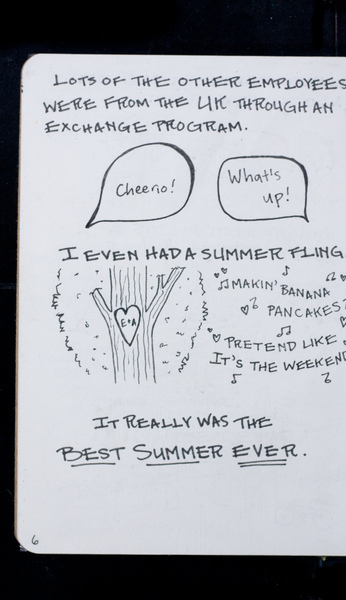 LOTS OF THE OTHER EMPLOYEES
WERE FROM THE UK THROUGH AN
EXCHANGE PROGRAM.
Cheerio!
What's
up!
I EVEN HAD A SUMMER FLING
E+A
MAKIN' BANANA
PANCAKES
PRETEND LIKE
IT'S THE WEEKEND
IT REALLY WAS THE
BEST SUMMER EVER.
6